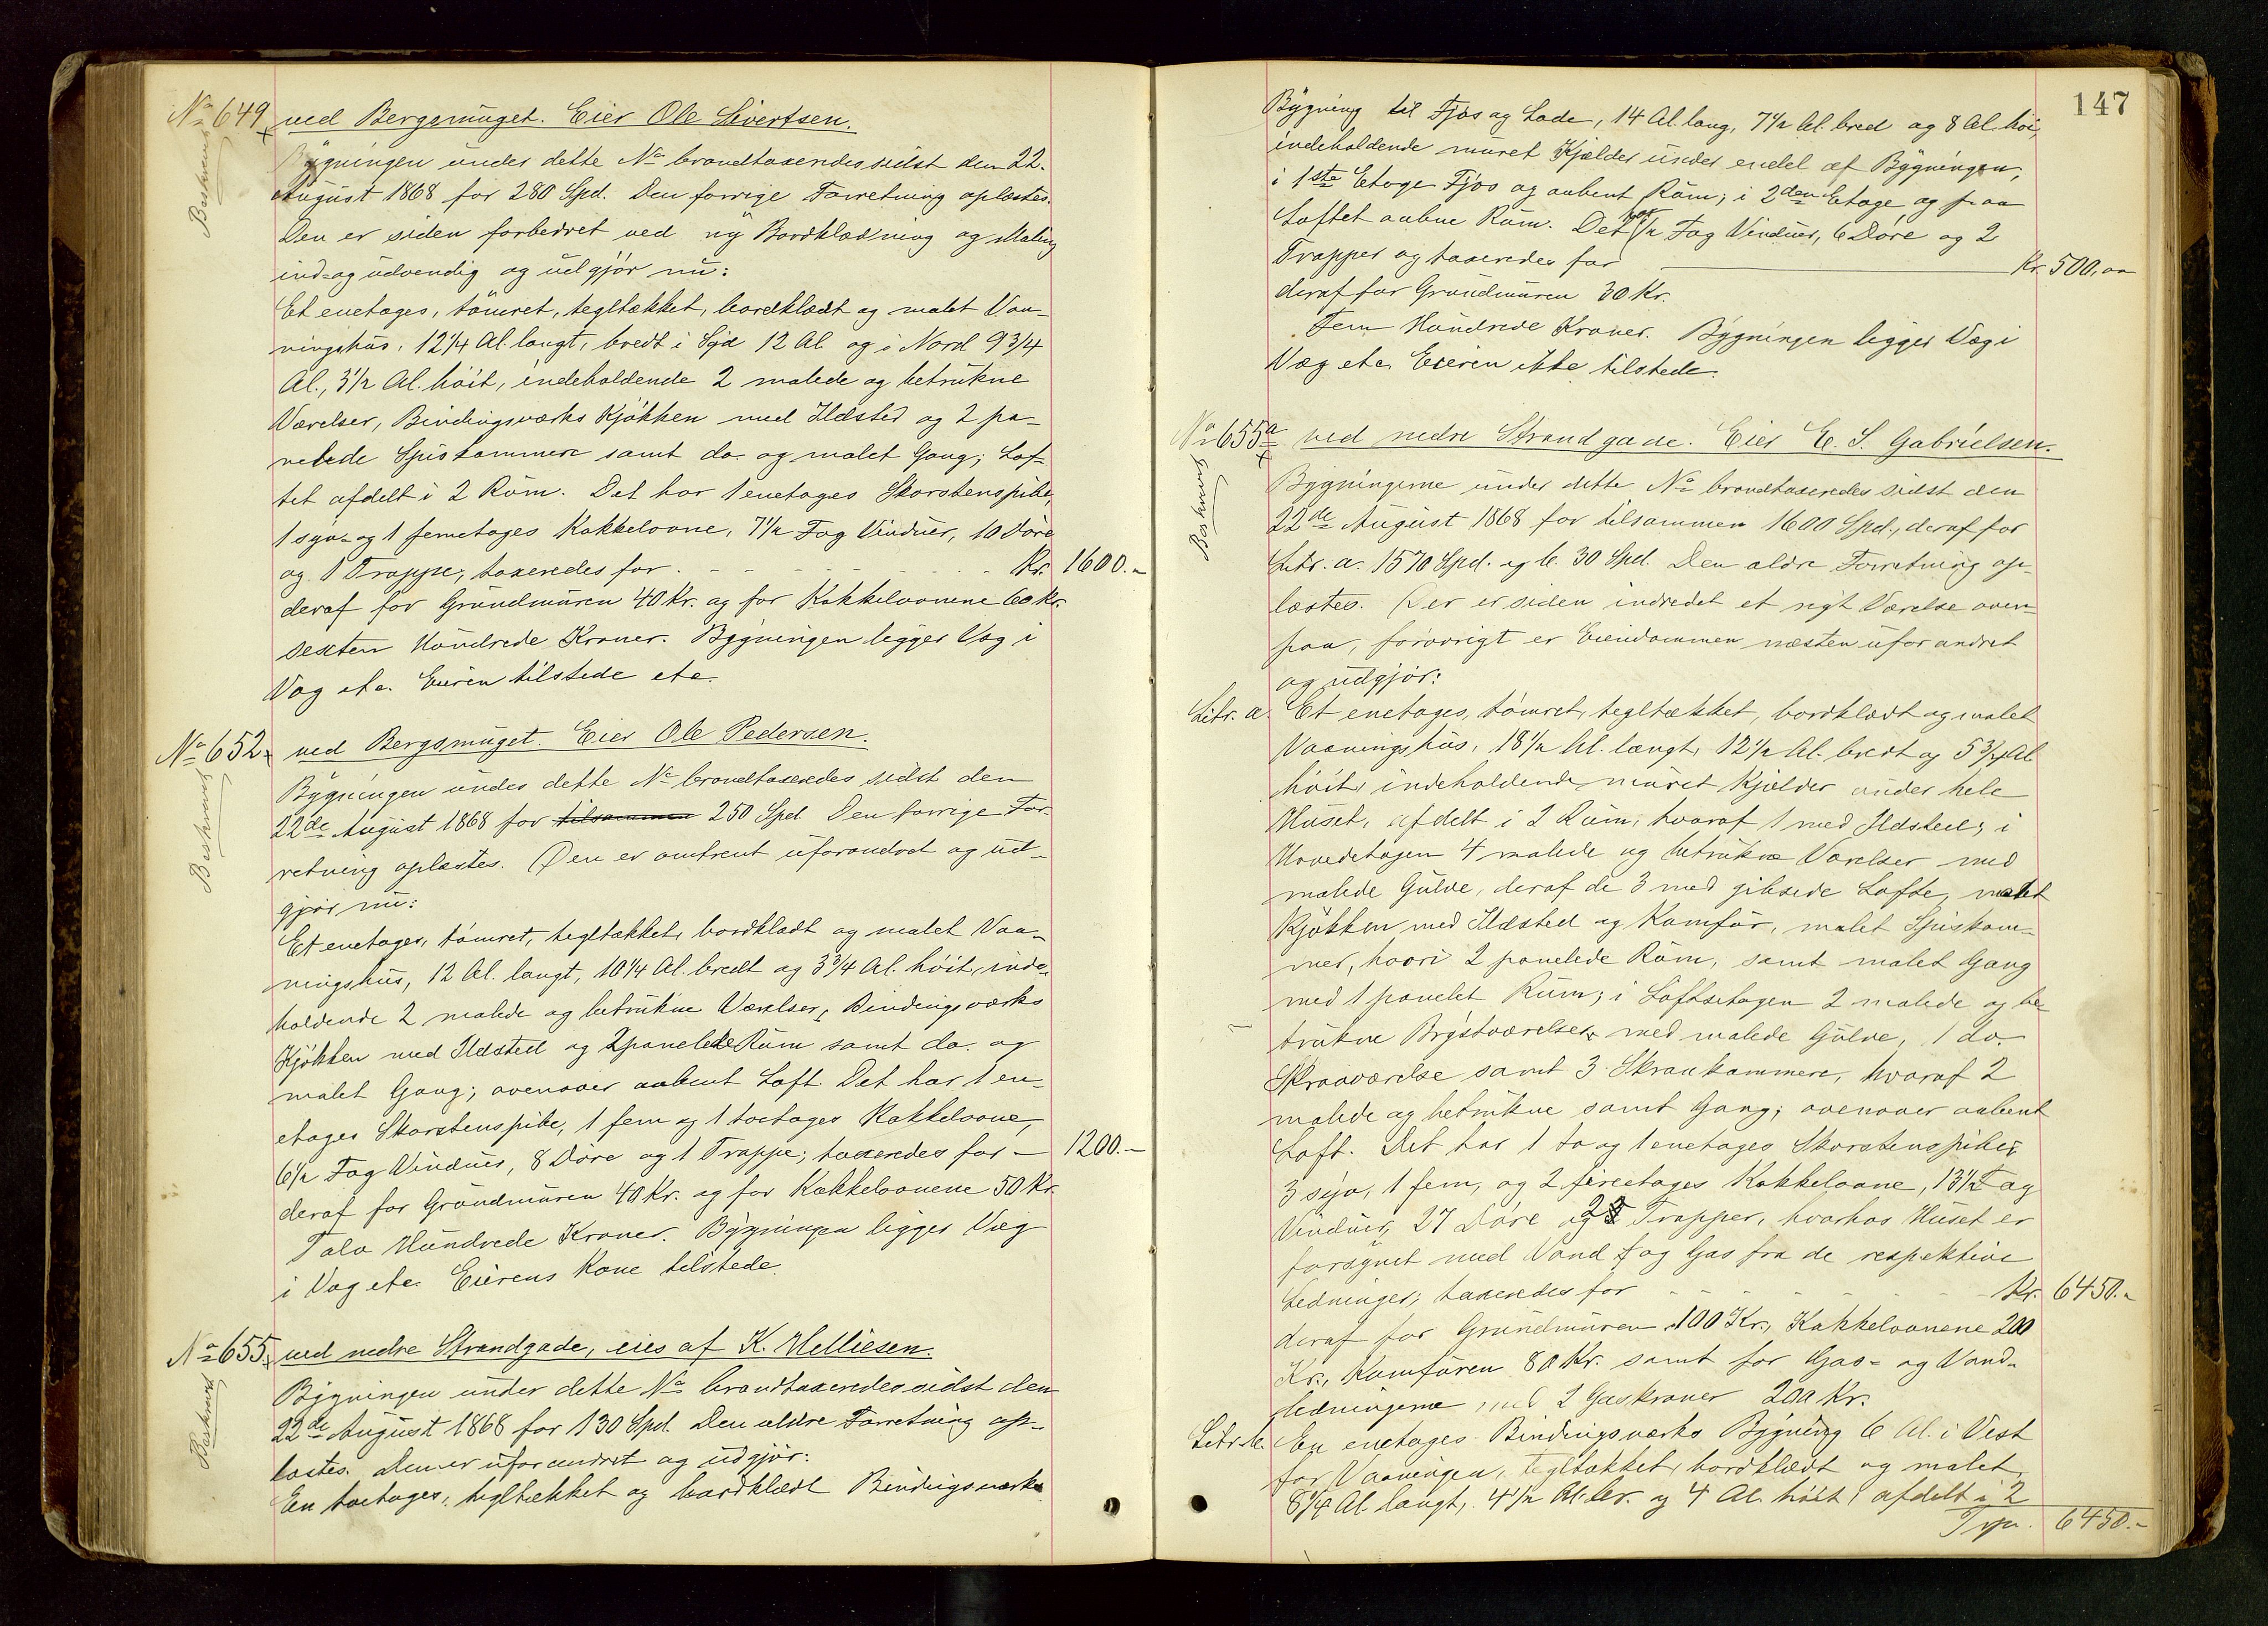 No 649 ved Bergsmuget. Eier Ole Sivertsen.
Beskrevet
Bygningen under dette No brandtaxeredes sidst den 22.
August 1868 for 280 Spd. Den forrige Forretning oplæstes.
Den er siden forbedret ved ny Bordklædning og Maling
ind- og udvendig og udgjør nu:
Et enetages, tømret, tegltækket, bordklædt og malet Vaa-
ningshus, 12 1/4 Al. langt, bredt i Syd 12 Al. og i Nord 9 3/4
Al., 3 1/2 Al. høit, indeholdende 2 malede og betrukne
Værelser, Bindingsværks Kjøkken med Ildsted og 2 pa-
nelede Spiskammere samt do. og malet Gang; Lof-
tet afdelt i 2 Rum. Det har 1 enetages Skorstenspibe,
1 syv- og 1 femetages Kakkelovne, 7 1/2 Fag Vinduer, 10 Døre
og 1 Trappe, taxeredes for - - - - - Kr. 1600.-
deraf for Grundmuren 40 Kr. og for Kakkelovnene 60 Kr.
Sexten Hundrede Kroner. Bygningen ligger Væg i
Væg etc. Eieren tilstede etc.
No 652 ved Bergsmuget. Eier Ole Pedersen.
Beskrevet
Bygningen under dette No brandtaxeredes sidst den
22de August 1868 for tilsammen 250 Spd. Den forrige For-
retning oplæstes. Den er omtrent uforandret og ud-
gjør nu:
Et enetages, tømret, tegltækket, bordklædt og malet Vaa-
ningshus, 12 Al. langt, 10 1/4 Al. bredt og 3 3/4 Al. høit, inde-
holdende 2 malede og betrukne Værelser, Bindingsværks
Kjøkken med Ildsted og 2 panelede Rum samt do. og
malet Gang; ovenover aabent Loft. Det har 1 en-
etages Skorstenspibe, 1 fem og 1 toetages Kakkelovne,
6 1/2 Fag Vinduer, 8 Døre og 1 Trappe; taxeredes for - 1200.-
deraf for Grundmuren 40 Kr. og for Kakkelovnene 50 Kr.
Tolv Hundrede Kroner. Bygningen ligger Væg
i Væg etc. Eierens Kone tilstede.
No 655 ved nedre Strandgade, eies af K. Melliesen.
Beskrevet
Bygningen under dette No brandtaxeredes sidst den
22de August 1868 for 130 Spd. Den ældre Forretning op-
læstes. Den er uforandret og udgjør:
En toetages, tegltækket og bordklædt Bindingsværks
147
Bygning til Fjøs og Lade, 14 Al. lang, 7 1/2 Al. bred og 8 Al. høi,
indeholdende muret Kjælder under endel af Bygningen,
i 1ste Etage Fjøs og aabent Rum; i 2den Etage og paa
Loftet aabne Rum. Det har 1/2 Fag Vinduer, 6 Døre og 2
Trapper og taxeredes for Kr. 500,00
deraf for Grundmuren 30 Kr.
Fem Hundrede Kroner. Bygningen ligger Væg i
Væg etc. Eieren ikke tilstede.
No 655a ved nedre Strandgade. Eier E. S. Gabrielsen.
Beskrevet
Bygningerne under dette No brandtaxeredes sidst den
22de August 1868 for tilsammen 1600 Spd., deraf for
Litr. a. 1570 Spd. og b. 30 Spd. Den ældre Forretning op-
læstes. Der er siden indredet et nyt Værelse oven-
paa, forøvrigt er Eiendommen næsten uforandret
og udgjør:
Litr. a. Et enetages, tømret, tegltækket, bordklædt og malet
Vaaningshus, 18 1/2 Al. langt, 12 1/2 Al. bredt og 5 3/4 Al.
høit, indeholdende muret Kjælder under hele
Huset, afdelt i 2 Rum, hvoraf 1 med Ildsted; i
Hovedetagen 4 malede og betrukne Værelser med
malede Gulve, deraf de 3 med gibsede Lofte, malet
Kjøkken med Ildsted og Komfur, malet Spiskam-
mer, hvori 2 panelede Rum, samt malet Gang
med 1 panelet Rum; i Loftsetagen 2 malede og be-
trukne Brystværelser med malede Gulve, 1 do.
Skraaværelse samt 3 Skraakammere, hvoraf 2
malede og betrukne samt Gang; ovenover aabent
Loft. Det har 1 to og 1 enetages Skorstenspiber,
3 syv, 1 fem, og 2 fireetages Kakkelovne, 13 1/2 Fag
Vinduer, 27 Døre og 2 Trapper, hvorhos Huset er
forsynet med Vand og Gas fra de respektive
Ledninger; taxeredes for - - - - - Kr. 6450.-
deraf for Grundmuren 100 Kr., Kakkelovnene 200
Kr., Komfuren 80 Kr. samt for Gas- og Vand-
ledningerne med 2 Gaskroner 200 Kr.
Litr. b. En enetages Bindingsværks Bygning 6 Al. i Vest
for Vaaningen, tegltækket, bordklædt og malet,
8 1/4 Al. langt, 4 1/2 Al. br. og 4 Al. høit, afdelt i 2
Trp. 6450.-